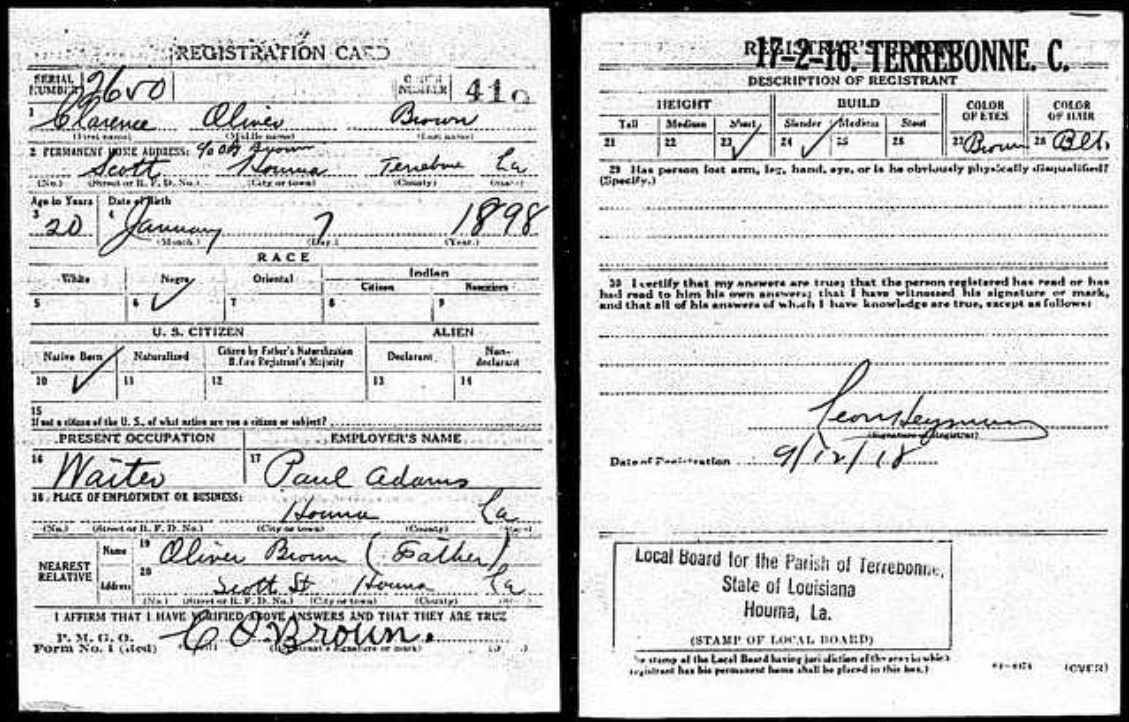 REGISTRATION CARD
SERIAL NUMBER 2650
ORDER NUMBER 410
1 Clarence Oliver Brown
(First name) (Middle name) (Last name)
2 PERMANENT HOME ADDRESS: % OB Brown
Scott Houma La
(No.) (Street or R. F. D. No.) (City or town) (County) (State)
Age in Years Date of Birth
3 20 4 January 7 1898
(Month.) (Day.) (Year.)
RACE
White Negro Oriental Indian
Citizen Noncitizen
5 6 ✓ 7 8 9
U. S. CITIZEN ALIEN
Native Born Naturalized Citizen by Father's Naturalization Before Registrant's Majority Declarant Non-declarant
10 ✓ 11 12 13 14
15
If not a citizen of the U. S., of what nation are you a citizen or subject?
PRESENT OCCUPATION EMPLOYER'S NAME
16 Waiter 17 Paul Adams
18 PLACE OF EMPLOYMENT OR BUSINESS:
Houma La
(No.) (Street or R. F. D. No.) (City or town) (County) (State)
NEAREST RELATIVE Name 19 Oliver Brown (Father)
Address 20 Scott St Houma La
(No.) (Street or R. F. D. No.) (City or town) (County)
I AFFIRM THAT I HAVE VERIFIED ABOVE ANSWERS AND THAT THEY ARE TRUE
P. M. G. O.
Form No. 1 (Red) C O Brown.
(Registrant's signature or mark)
REGISTRAR'S
17-2-16. TERREBONNE. C.
DESCRIPTION OF REGISTRANT
HEIGHT BUILD COLOR OF EYES COLOR OF HAIR
Tall Medium Short Slender Medium Stout
21 22 23 ✓ 24 ✓ 25 26 27 Brown 28 Blk.
29 Has person lost arm, leg, hand, eye, or is he obviously physically disqualified?
(Specify.)
30 I certify that my answers are true; that the person registered has read or has
had read to him his own answers; that I have witnessed his signature or mark,
and that all of his answers of which I have knowledge are true, except as follows:
(Signature of Registrar)
Date of Registration 9/12/18
Local Board for the Parish of Terrebonne,
State of Louisiana
Houma, La.
(STAMP OF LOCAL BOARD)
The stamp of the Local Board having jurisdiction of the area in which
registrant has his permanent home shall be placed in this box.)
(OVER)